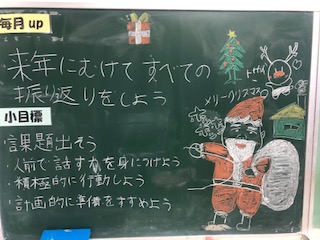 毎月up
来年にむけて すべての
振り返りをしよう
小目標
課題出そう
・人前で話す力を身につけよう
・積極的に行動しよう
・計画的に準備をすすめよう
メリークリスマス
トナカイ